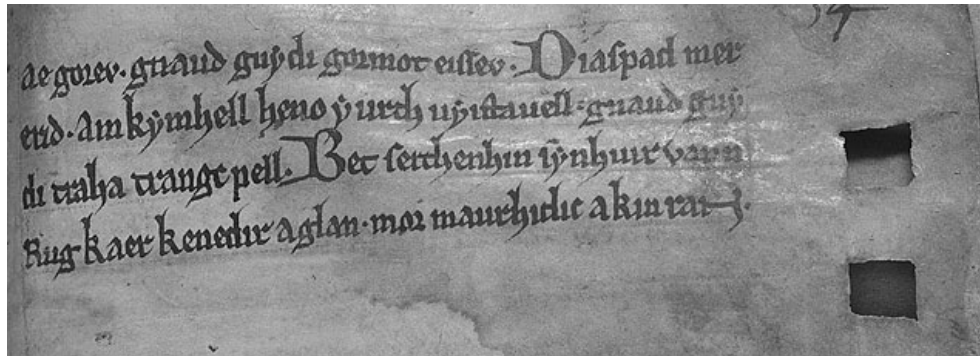 ae gorev. gnaud guydi gormot eissev. Diaspad mer
erid. Am kymhell heno y urth uyistauell. gnaud guy
di traha trangc pell. Bet seithenhin synhuir vann
Rug kaer kenedir a glan. mor maurhidic a kinran.